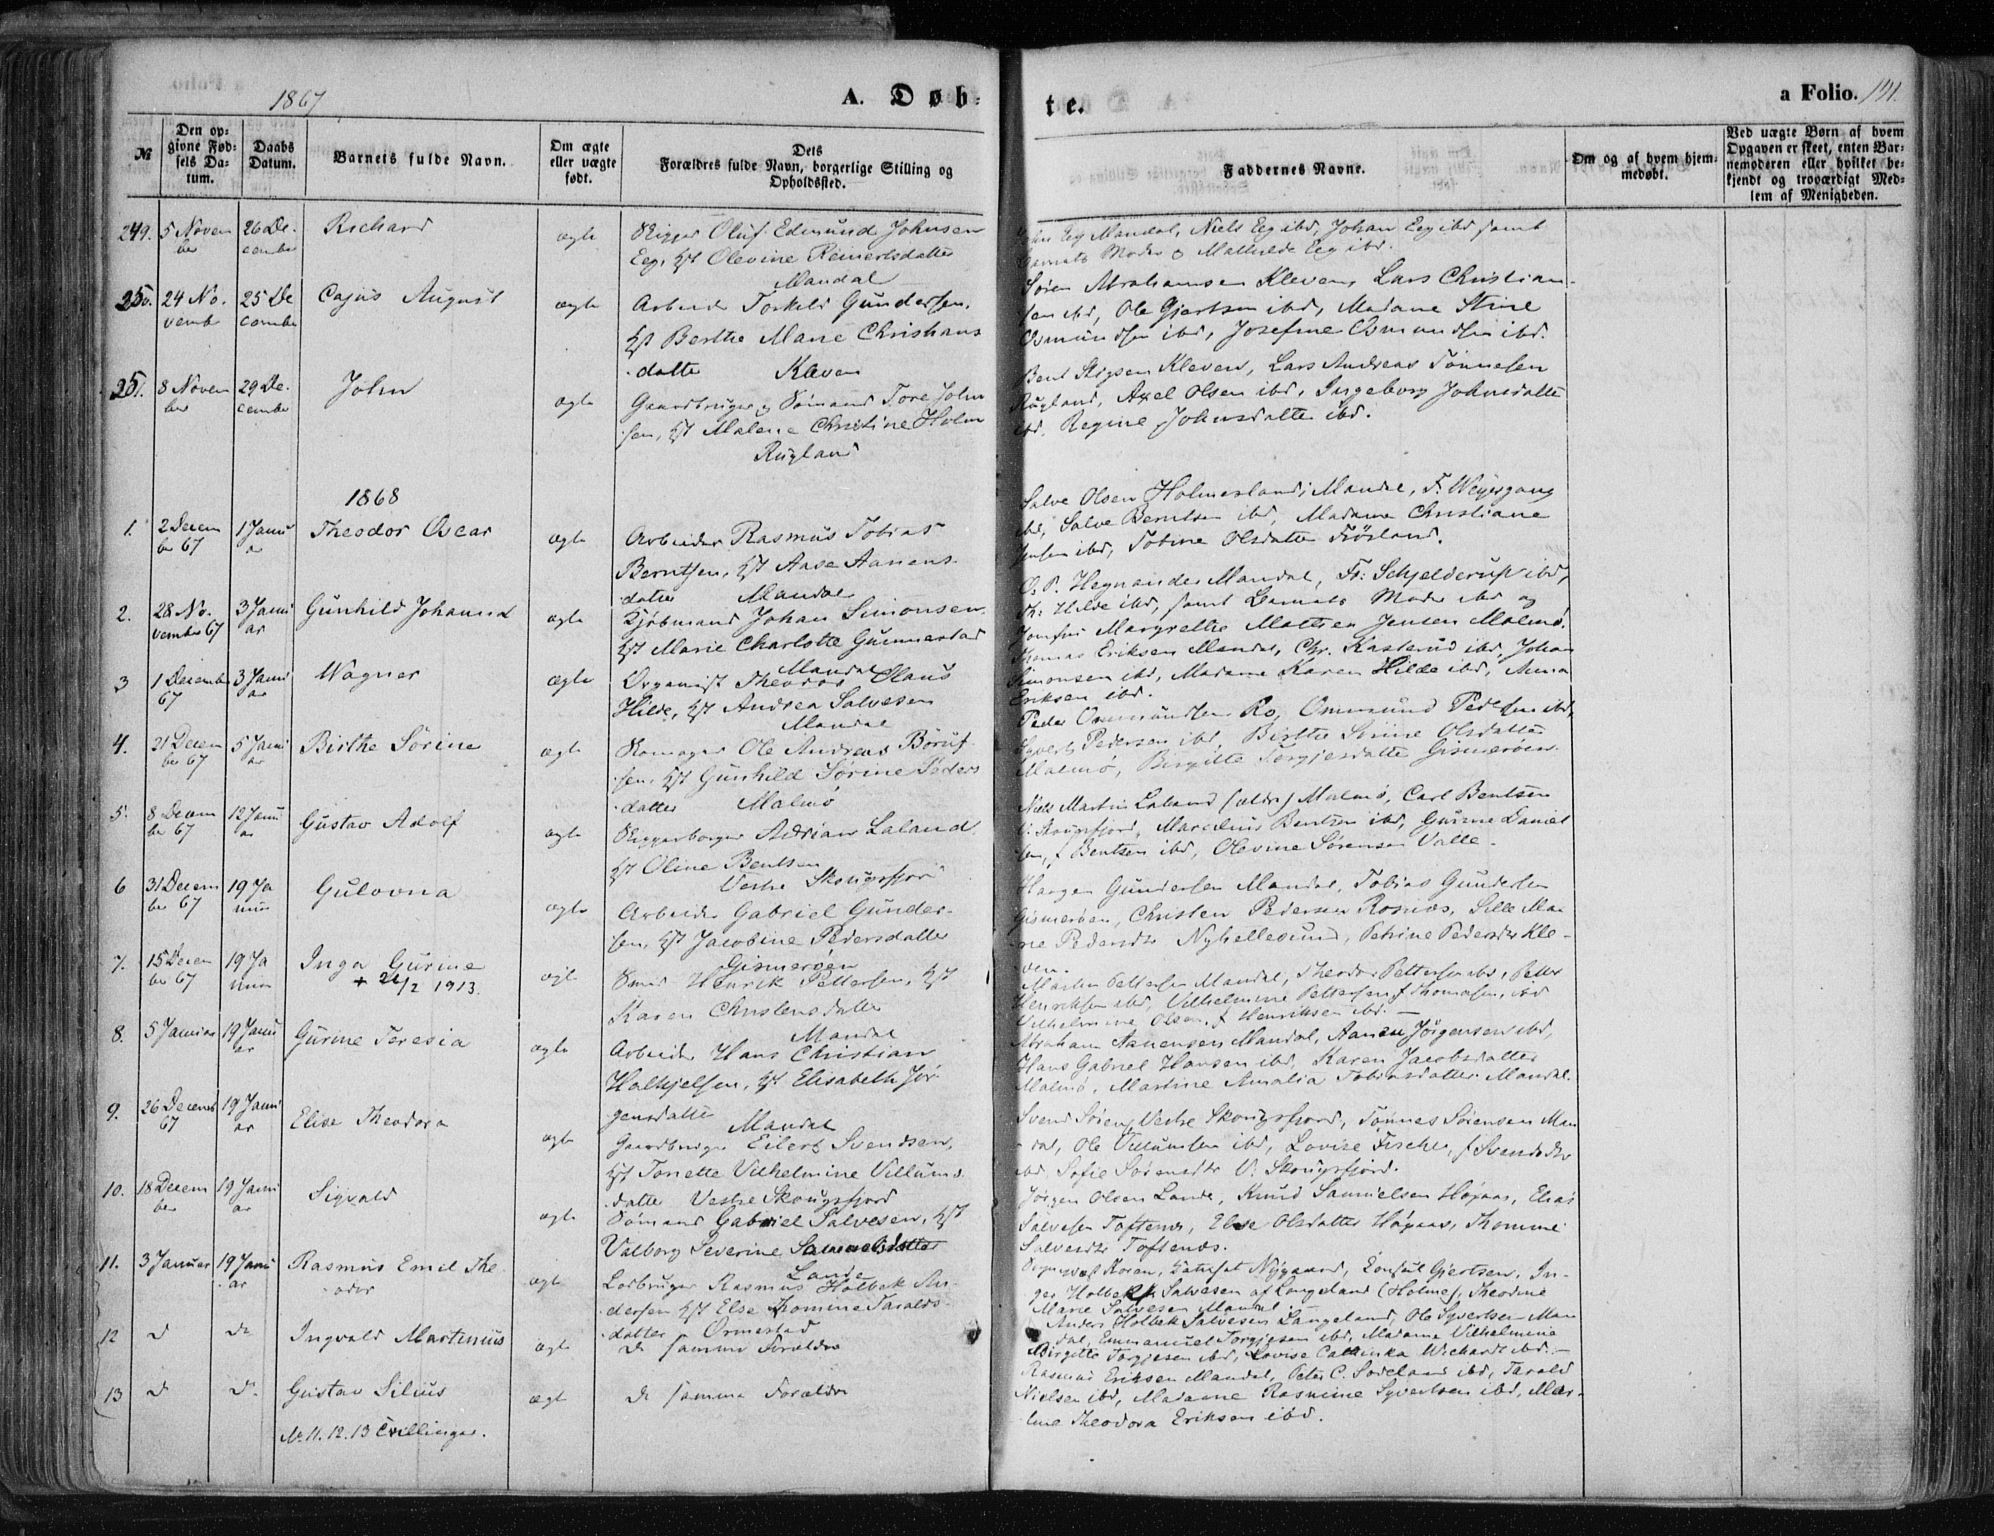 1867
A. Døb-
te.
a Folio. 131.
№
Den op-
givne Fød-
sels Da-
tum.
Daabs
Datum.
Barnets fulde Navn.
Om ægte
eller uægte
født.
Dets
Forældres fulde Navn, borgerlige Stilling og
Opholdssted.
Faddernes Navne.
Om og af hvem hjem-
medøbt.
Ved uægte Børn af hvem
Opgaven er skeet, enten Bar-
nemoderen eller hvilket be-
kjendt og troværdigt Med-
lem af Menigheden.
249. 5 Novem
ber
26 De-
cember
Richard
ægte
Skipper Oluf Edmund Johnsen
Eeg, Hst Olevine Reinertsdatter
Mandal
Eeg Mandal, Niels Eeg ibd, Johan Eeg ibd samt
Barnets Moder o Mathilde Eeg ibd.
250. 24 No-
vember
25 De
cember
Cajus August
ægte
Arbeider Torkeld Gundersen,
Hst Berthe Marie Christians
datter Kleven
Søren Abrahamsen Kleven, Lars Christian-
sen ibd, Ole Gjertsen ibd, Madame Stine
Osmundsen ibd, Josefine Osmundsen ibd.
251. 8 Novem
ber
29 De-
cember
John
ægte
Gaardbruger og Sømand Tore John
sen, Hst Malene Christine Holm
Rugland
Bent Stigsen Kleven, Lars Andreas Tønnesen
Rugland, Axel Olsen ibd, Ingeborg Johnsdatter
ibd, Regine Johnsdatter ibd.
1868
1. 2 Decem
ber 67
1 Janu
ar
Theodor Oscar
ægte
Arbeider Rasmus Tobias
Berntsen, Hst Aase Aanens-
datter Mandal
Salve Olsen Holmesland, Mandal, F. Weyergang
ibd, Salve Berntsen ibd, Madame Christiane
Jensen ibd, Tobine Olsdatter Frøsland.
2. 28 No-
vember 67
3 Janu
ar
Gunhild Johanna
ægte
Kjøbmand Johan Simonsen
Hst Marie Charlotte Gunnestad
Mandal
O. P. Hegnander Mandal, Fr: Schjelderup ibd,
Th: Hilde ibd, samt Barnets Moder ibd og
Jomfru Margrethe Mathea Jensen Malmø.
3 1 December
67
3 Janu
ar
Wagner
ægte
Organist Theodor Olaus
Hilde, Hst Andrea Salvesen
Mandal
Thomas Eriksen Mandal, Chr. Kasterud ibd, Johan
Simonsen ibd, Madame Karen Hilde ibd, Anna
Eriksen ibd.
4. 21 Decem
ber 67
5 Janu
ar
Birthe Sørine
ægte
Skomager Ole Andreas Børuf-
sen, Hst Gunhild Sørine Peders
datter Malmø
Peder Ommundsen Ro, Ommund Pedersen ibd,
Sivert Pedersen ibd, Birthe Serine Olsdatter
Malmø, Birgitte Torgjesdatter Gismerøen
5. 8 Decem
ber 67
12 Janu
ar
Gustav Adolf
ægte
Skipperborger Adrian Laland
Hst Oline Bentsen
Vestre Skougsfjord
Niels Martin Laland (ældre) Malmø, Carl Bentsen
V. Skougsfjord, Marcelius Bentsen ibd, Gurine Daniel
sen, f Bentsen ibd, Olevine Sørensen Valle.
6 31 Decem
ber 67
19 Ja
nuar
Gulovna
ægte
Arbeider Gabriel Gunder-
sen, Hst Jacobine Pedersdatter
Gismerøen
Haagen Gundersen Mandal, Tobias Gundersen
Gismerøen, Christen Pedersen Rosnæs, Sille Ma
rie Pedersdtr Nyhellesund, Petrine Pedersdtr Kle-
ven.
7. 15 Decem
ber 67
19 Ja
nuar
Inga Gurine
+ 24/2 1913.
ægte
Smed Henrik Pettersen, Hst
Karen Christensdatter
Mandal
Martin Pettersen Mandal, Theodor Pettersen ibd, Petter
Henriksen ibd, Vilhelmine Pettersen f Thomasen, ibd
Vilhelmine Olsen, f Henriksen ibd. —
8. 5 Januar
19 Janu
ar
Gurine Teresia
ægte
Arbeider Hans Christian
Halkjelsen, Hst Elisabeth Jør-
gensdatter Mandal
Abraham Aanensen Mandal, Aanen Jørgensen ibd,
Hans Gabriel Hansen ibd, Karen Jacobsdatter
Malmø, Martine Amalia Tobiasdatter Mandal.
9. 26 Decembr
67
19 Janu
ar
Elise Theodora
ægte
Gaardbruger Eilert Svendsen,
Hst Tonette Vilhelmine Villums
datter Vestre Skougsfjord
Svend Sørens Vestre Skougsfjord, Tønnes Sørensen Man
dal, Ole Villumsen ibd, Lovise Fischer, f Svendsdtr
ibd Sofie Sørensdtr V. Skougsfjord.
10. 18 Decem
ber
19 Janu
ar
Sigvald
ægte
Sømand Gabriel Salvesen, Hst
Valborg Severine Samuelsdatter
Lande
Jørgen Olsen Lande, Knud Samuelsen Høgaas, Elias
Salvesen Toftenes, Else Olsdatter Høgaas, Thomine
Salvesdtr Toftenes.
11. 3 Januar
19 Janu
ar
Rasmus Emil The
odor
ægte
Lodbruger Rasmus Holbek An-
dersen Hst Else Thomine Taralds-
datter Ormestad
Sogneprest Koren, Nygaard, Consul Gjertsen, In-
ger Holbek f. Salvesen af Langeland (Holme), Theodine
Marie Salvesen Mandal
12 d do
Ingvald Martinius
ægte
de samme Forældre
Anders Holbek Salvesen Langeland, Ole Syvertsen Man
dal, Emmanuel Torgjesen ibd, Madame Vilhelmine
Birgitte Torgjesen ibd, Lovise Cathinka Wichardt ibd. —
13 d d.
Gustav Silius
ægt
de samme Forældre
Rasmus Eriksen Mandal, Peter C. Sødeland ibd, Tarald
Nielsen ibd, Madame Rasmine Syvertsen ibd, Mar-
tine Theodora Eriksen ibd.
No 11. 12. 13 Trillinger.